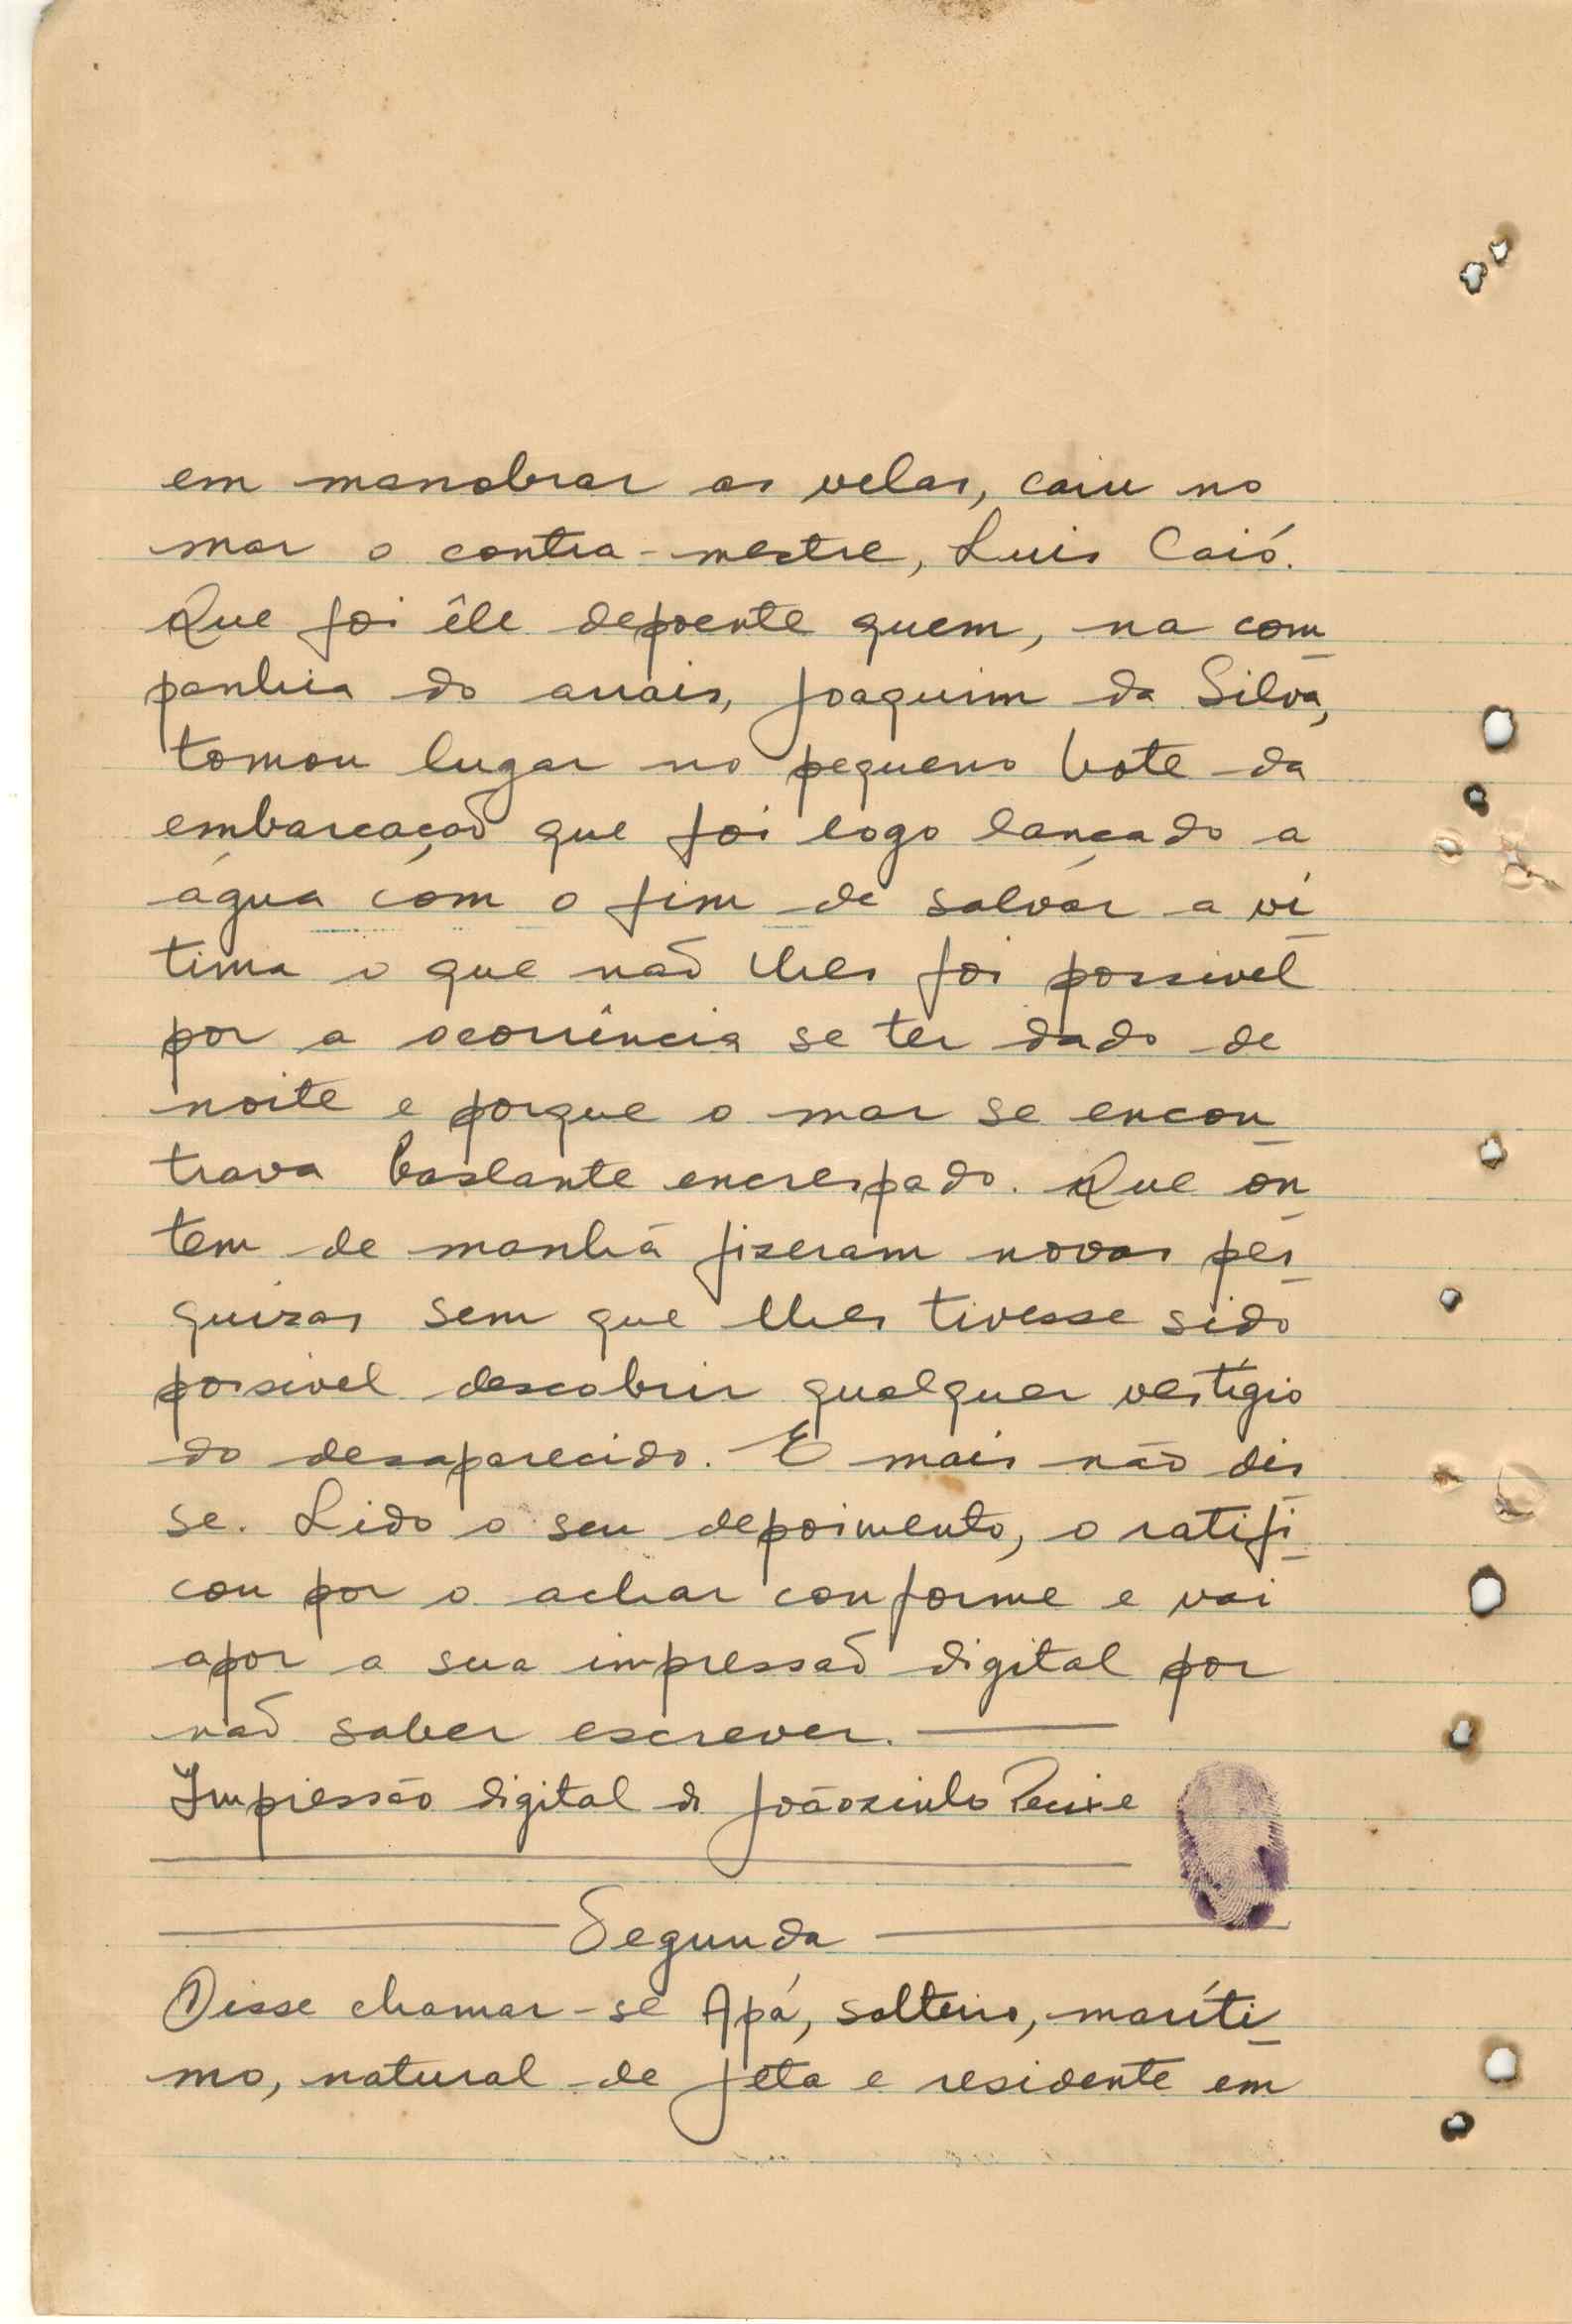 em manobrar as velas, caiu no
mar o contra-mestre, Luis Caió.
Que foi êle depoente quem, na com_
panhia do arrais, Joaquim da Silva,
tomou lugar no pequeno bote da
embarcação que foi logo lançado a
água com o fim de salvar a ví_
tima o que não lhes foi possivel
por a ocorrência se ter dado de
noite e porque o mar se encon_
trava bastante encrespado. Que on_
tem de manhã fizeram novas pes_
quizas sem que lhes tivesse sido
possivel descobrir qualquer vestígio
do desaparecido. E mais não dis_
se. Lido o seu depoimento, o ratifi_
cou por o achar conforme e vai
apor a sua impressão digital por
não saber escrever.
Impressão digital de Joãozinho Peixe
Segunda
Disse chamar-se Apá, solteiro, maríti_
mo, natural de Jeta e residente em